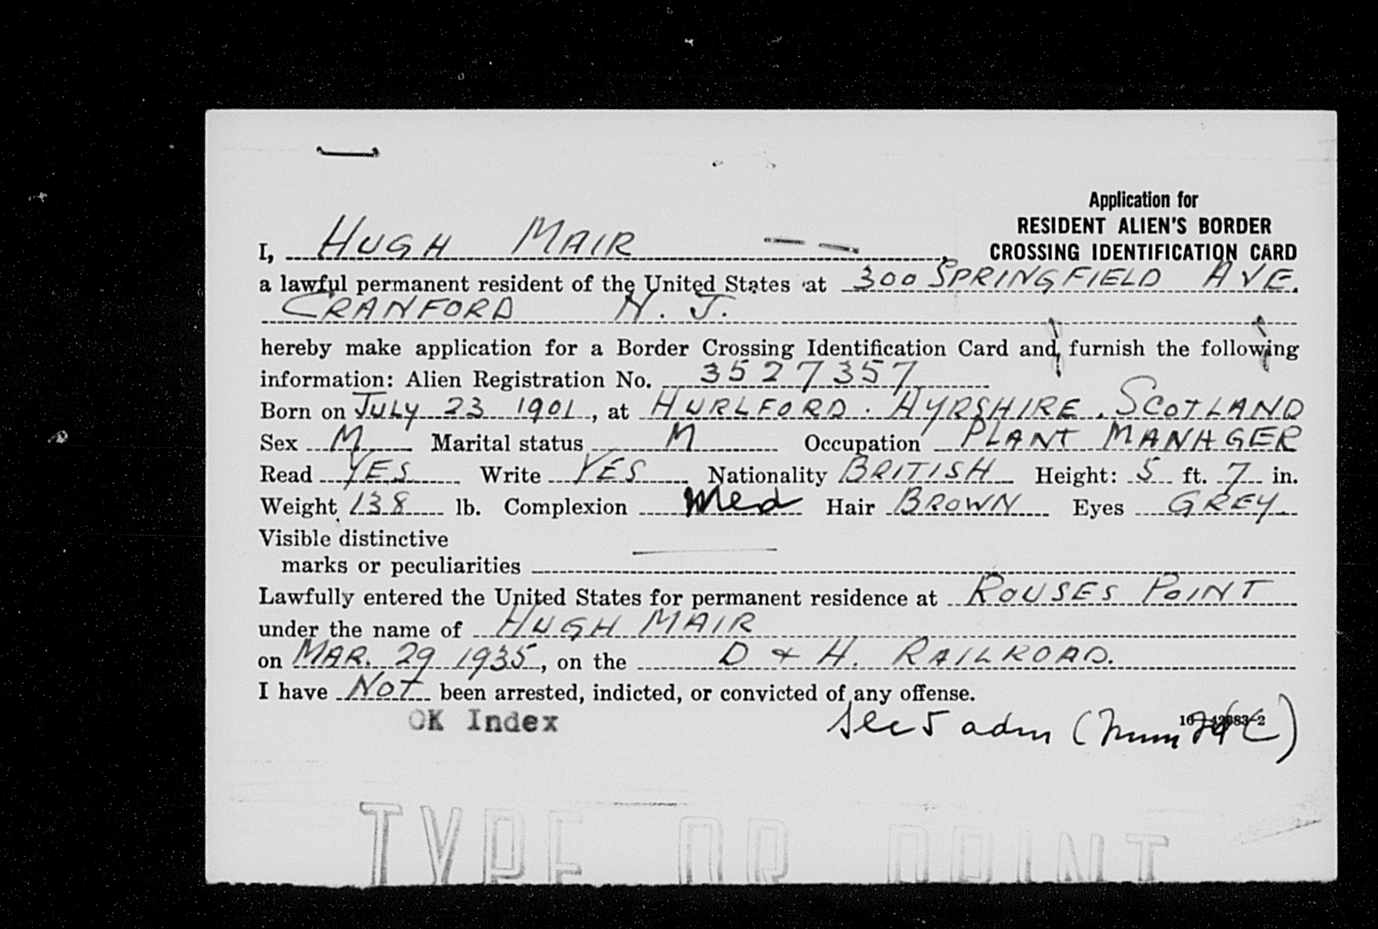 Application for
RESIDENT ALIEN'S BORDER
CROSSING IDENTIFICATION CARD
I, HUGH MAIR,
a lawful permanent resident of the United States at 300 SPRINGFIELD AVE.
CRANFORD N. J.
hereby make application for a Border Crossing Identification Card and furnish the following
information: Alien Registration No. 3527357
Born on JULY 23 1901, at HURLFORD. AYRSHIRE. SCOTLAND
Sex M Marital status M Occupation PLANT MANAGER
Read YES Write YES Nationality BRITISH Height: 5 ft. 7 in.
Weight 138 lb. Complexion Med Hair BROWN Eyes GREY
Visible distinctive
marks or peculiarities
Lawfully entered the United States for permanent residence at ROUSES POINT
under the name of HUGH MAIR
on MAR. 29 1935, on the D & H. RAILROAD.
I have NOT been arrested, indicted, or convicted of any offense.
OK Index
adm
TYPE OR PRINT